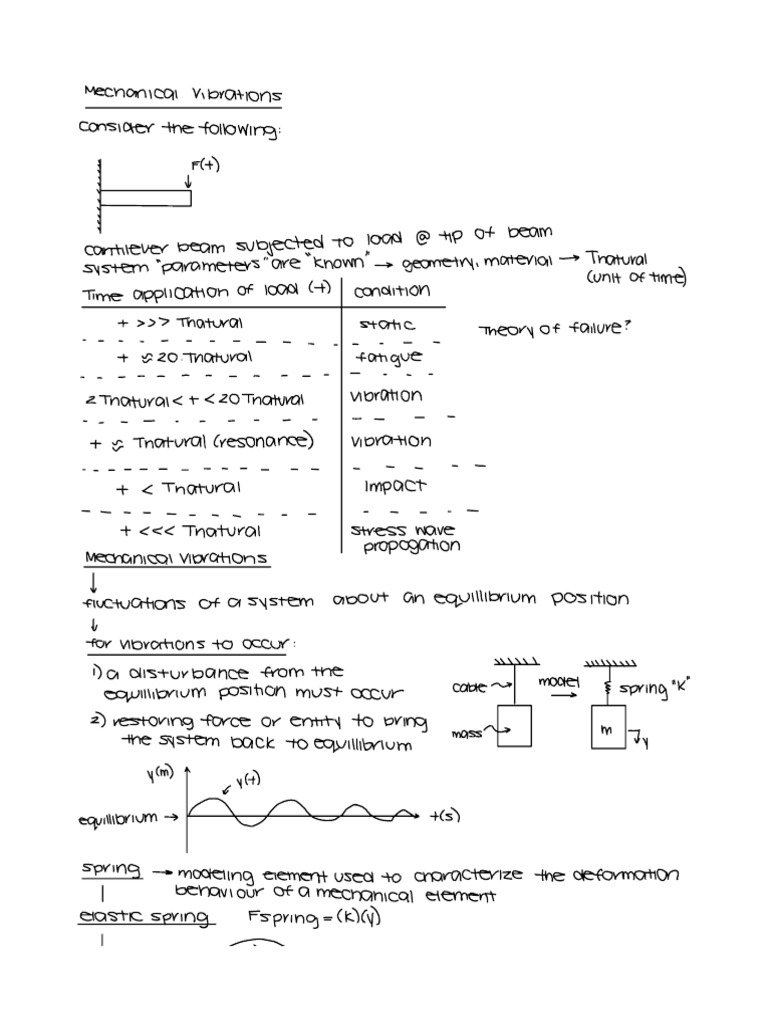 Mechanical Vibrations
Consider the following:
F(t)
cantilever beam subjected to load @ tip of beam
system "parameters" are "known" → geometry, material → Tnatural
(unit of time)
Time application of load (t) condition
t >>> Tnatural static Theory of failure?
t ≈ 20 Tnatural fatigue
2 Tnatural < t < 20 Tnatural vibration
t ≈ Tnatural (resonance) vibration
t < Tnatural impact
t <<< Tnatural stress wave
propogation
Mechanical vibrations
↓
fluctuations of a system about an equillibrium position
↓
for vibrations to occur:
1) a disturbance from the
equillibrium position must occur
2) restoring force or entity to bring
the system back to equillibrium
cable model spring "K"
mass m y
y(m) y(t)
equillibrium → t(s)
spring → modeling element used to characterize the deformation
behaviour of a mechanical element
elastic spring Fspring = (k)(y)